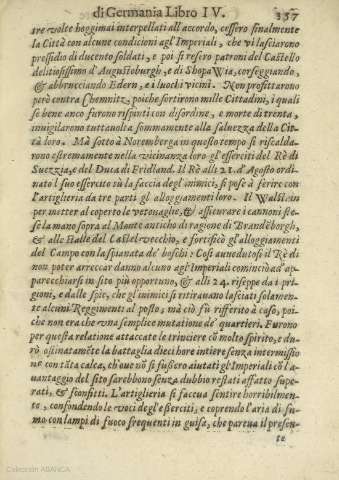 di Germania Libro IV. 357
tre volte hoggimai interpellati all'accordo, cessero finalmente
la Città con alcune condicioni agl'Imperiali, che vi lasciarono
presidio di ducento soldati, e poi si resero patroni del Castello
delitiosissimo d'Augustoburgh, e di ShopaWia, corseggiando,
& abbrucciando Edern, e i luochi vicini. Non profittarono
però contra Chemnitz, poiche sortirono mille Cittadini, i quali
se bene anco furono rispinti con disordine, e morte di trenta,
invigilarono tuttauolta sommamente alla saluezza della Cit-
tà loro. Mà sotto à Noremberga in questo tempo si riscalda-
rono estremamente nella vicinanza loro gl'esserciti del Rè di
Suezzia, e del Duca di Fridland. Il Rè alli 21. d'Agosto ordi-
nato l suo essercito sù la faccia degl'inimici, si pose à ferire con
l'artiglieria da tre parti gl'alloggiamenti loro. Il Walstein
per metter al coperto le vettouaglie, & assicurare i cannoni ste-
se la mano sopra al Monte antichο di ragione di Brandeborgh,
& alle Halle del Castel vecchio, e fortificò gl'alloggiamenti
del Campo con la spianata de' boschi: Così auuedutosi il Rè di
non poter arreccar danno alcuno agl'Imperiali cominciò ad ap-
parecchiarsi in sito più opportuno, & alli 24. riseppe da i pri-
gioni, e dalle spie, che gl'inimici si ritirauano lasciati solamen-
te alcuni Reggimenti al posto, mà ciò fù riferito à caso, poi-
che non era che vna semplice mutatione de' quartieri. Furono
per questa relatione attaccate le trinciere cõ molto spirito, e du-
rò ostinatamẽte la battaglia dieci hore intiere senza intermissio
ne cõ tãta calca, ch'oue nõ si fussero aiutati gl'Imperiali cõ l'a-
uantaggio del sito sarebbono senza dubbio restati affatto supe-
rati, & sconfitti. L'artiglieria si faceua sentire horribilmen-
te, confondendo le voci degl'esserciti, e coprendo l'aria di fu-
mo con lampi di fuoco frequenti in guisa, che parea il presen-
te
Colección ABANCA